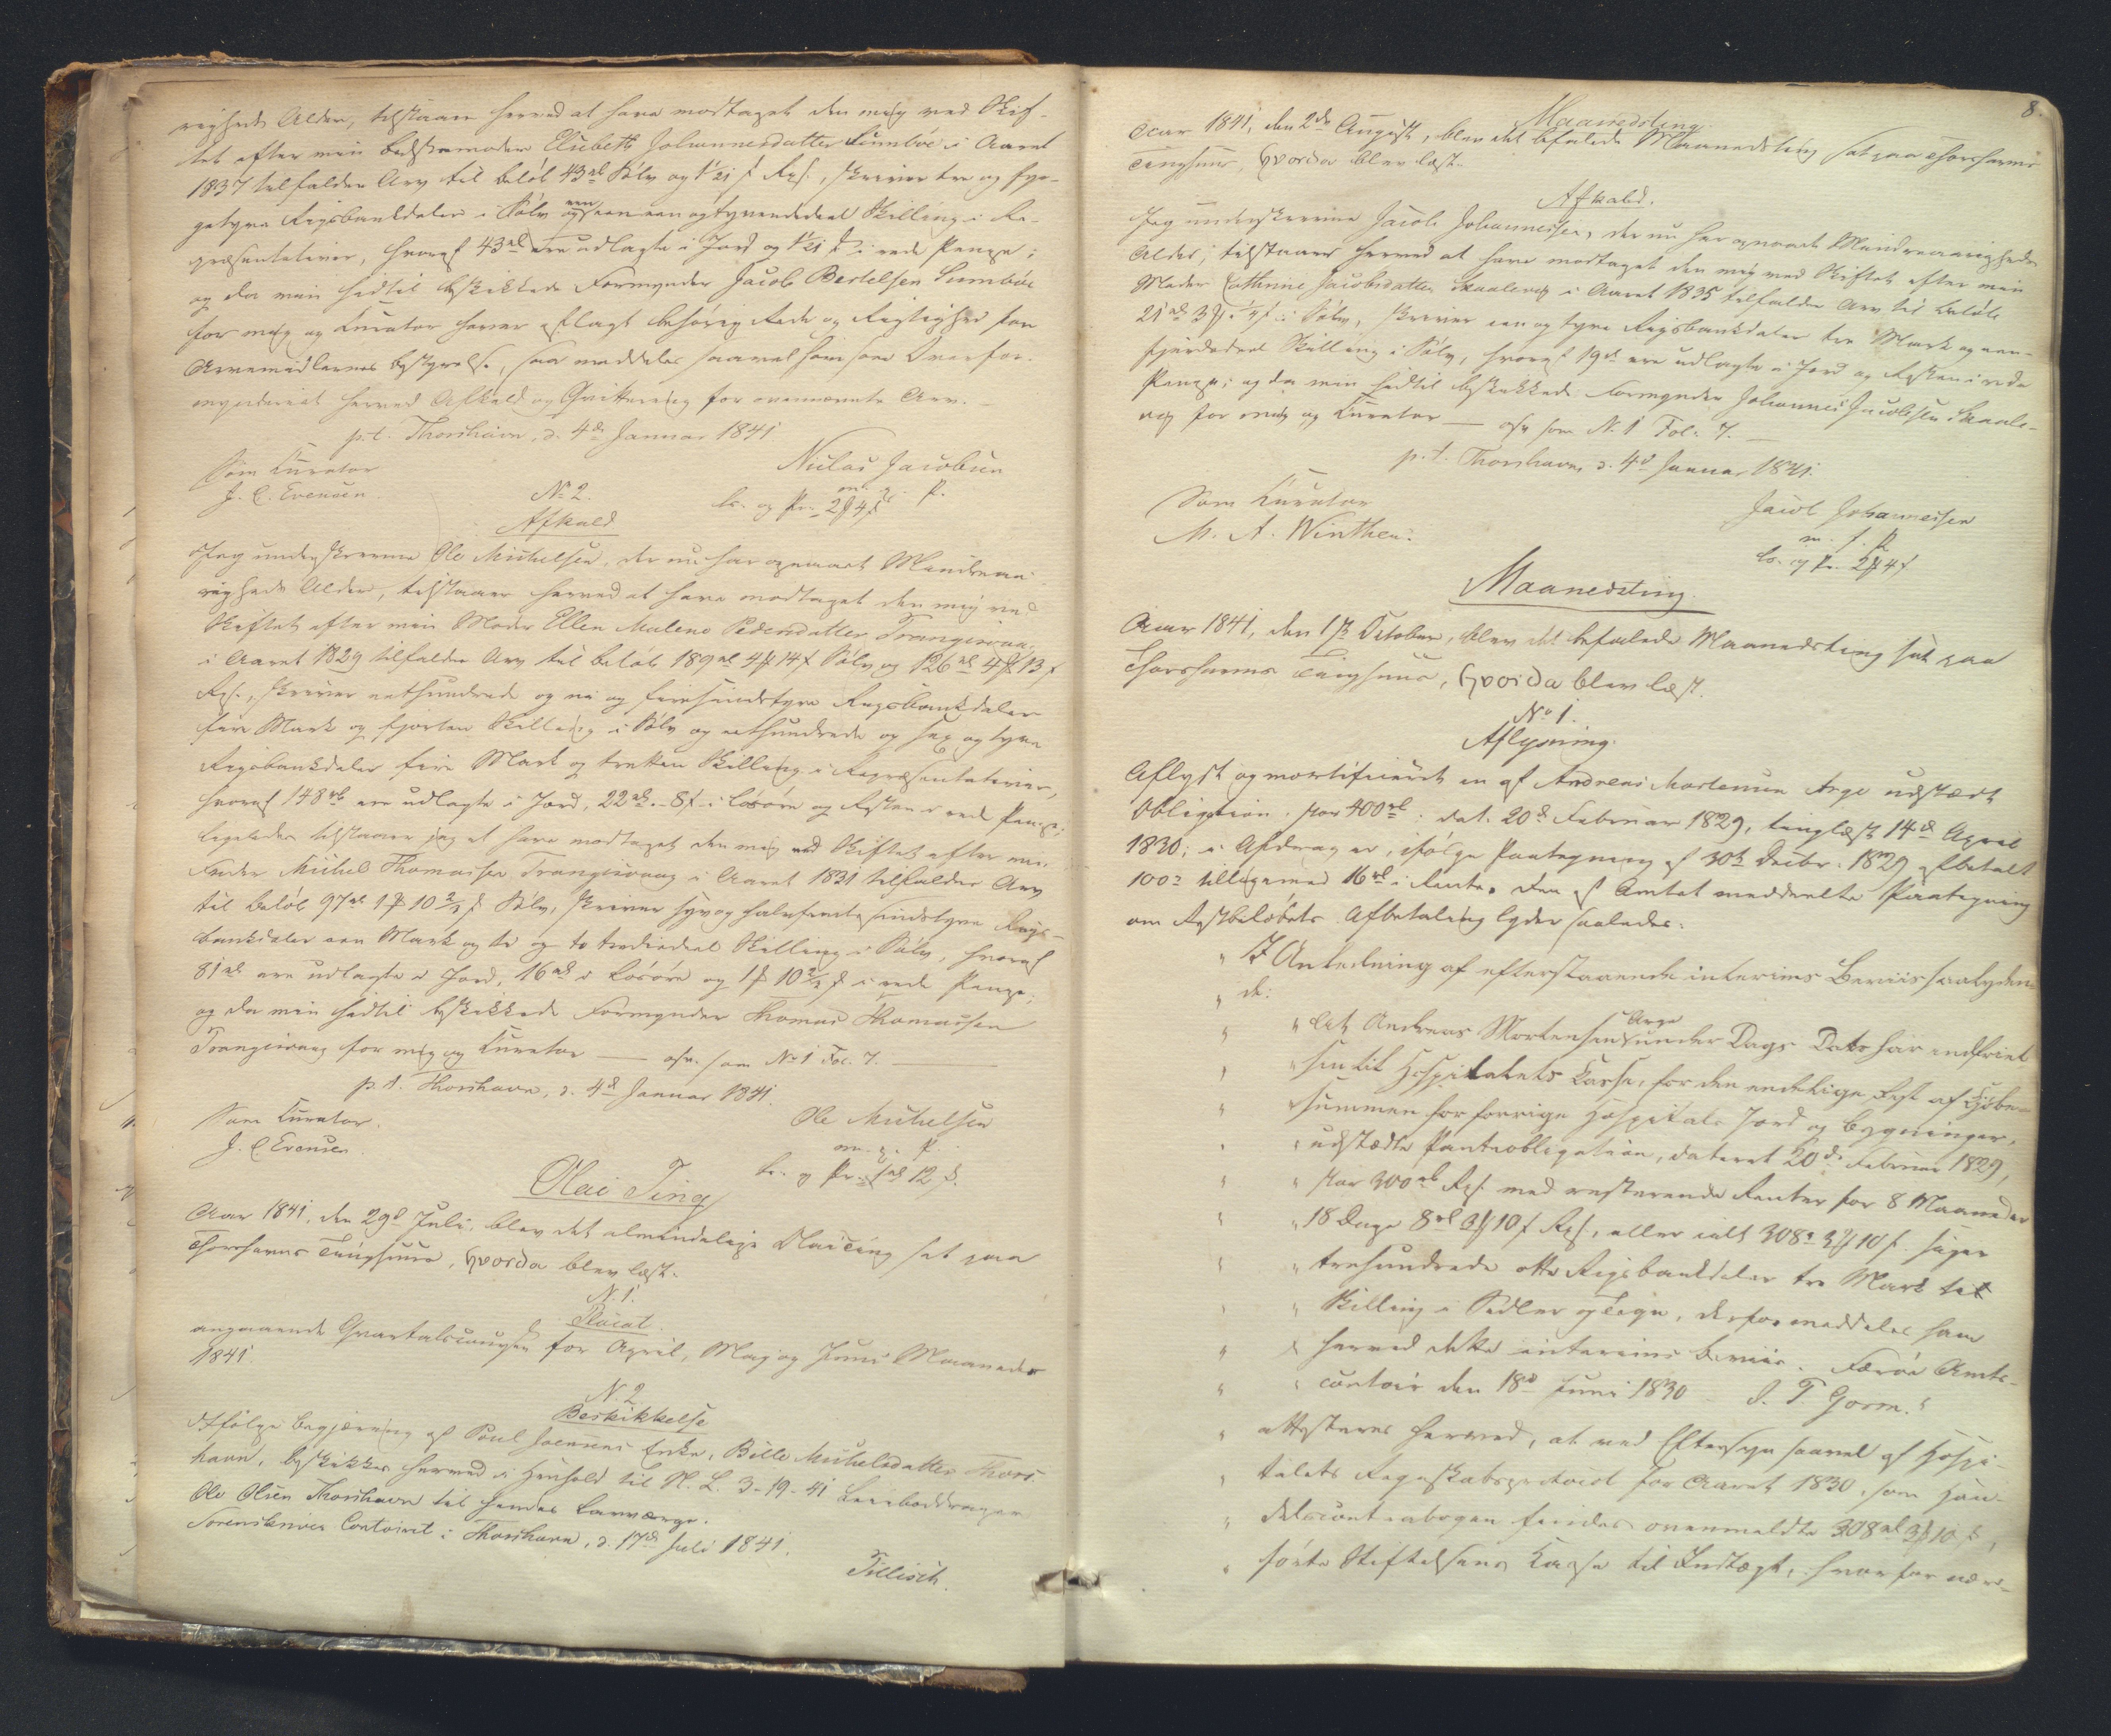 righeds Alder, tilstaaer herved at have modtaget den mig ved Skif-
tet efter min Bedstemoder Elisbeth Johannesdatter Sumböe i Aaret
1837 tilfaldne Arv til Beløb 43 rd Sølv og 1/21 s Rep., skriver tre og fyr-
getyve Rigsbankdaler i Sølv og een een og tyvendedeel Skilling i Re-
præsentativer, hvoraf 43 rd ere udlagte i Jord og 1/21 s i rede Penge;
og da min hidtil beskikkede Formynder Jacob Bertelsen Sumböe
for mig og Curator haver aflagt behørig Rede og Rigtighed for
Arvemidlernes Bestyrelse, saa meddeles saavel ham som Overfor-
mynderiet herved Afkald og Qvittering for ovennævnte Arv.
p.t. Thorshavn, d. 4de Januar 1841
Som Curator
Niclas Jacobsen
J. C. Evensen
m. f. P.
No 2.
Afkald
Jeg underskrevne Ole Michelsen, der nu har opnaaet Mindreaa-
righeds Alder, tilstaaer herved at have modtaget den mig ved
Skiftet efter min Moder Ellen Malene Pedersdatter Trangisvaag
i Aaret 1829 tilfaldne Arv til Beløb 189 rd 4 mk 14 s Sølv og 126 rd 4 mk 13 s
Rep., skriver eethundrede og ni og firesindstyve Rigsbankdaler
fire Mark og fjorten Skilling i Sølv og eethundrede og sex og tyve
Rigsbankdaler fire Mark og tretten Skilling i Repræsentativer,
hvoraf 148 rd ere udlagte i Jord, 22 rd - 8 s i Løsøre og Resten i rede Penge;
ligeledes tilstaaer jeg at have modtaget den mig ved Skiftet efter min
Fader Michel Thomassen Trangisvaag i Aaret 1831 tilfaldne Arv
til Beløb 97 rd 1 mk 10 2/3 s Sølv, skriver syv og halvfemtesindstyve Rigs-
bankdaler een Mark og ti og to trediedeel Skilling i Sølv, hvoraf
81 rd ere udlagte i Jord, 16 rd i Løsøre og 1 mk 10 2/3 s i rede Penge;
og da min hidtil beskikkede Formynder Thomas Thomassen
Trangisvaag for mig og Curator — osv. som No 1 Fol. 7.
p.t. Thorshavn, d. 4de Januar 1841.
Som Curator.
Ole Michelsen
J. C Evensen
m. f. P.
Olai Ting
Aar 1841, den 29de Juli, blev det almindelige Olai Ting sat paa
Thorshavns Tinghuus, hvorda blev læst.
N. 1.
Placat
angaaende Qvartalscoursen for April, Maj og Juni Maaneder
1841.
N. 2.
Beskikkelse
Ifølge Begjæring af Poul Joensens Enke, Bille Michelsdatter Thors-
havn, beskikkes herved i Henhold til N. L. 3-19-41
Ole Olsen Thorshavn til hendes Laugværge.
Sorenskriver Contoiret i Thorshavn, d. 17de Juli 1841.
Tillisch.
8.
Maanedsting.
Aar 1841, den 2de August, blev det befalede Maanedsting sat paa Thorshavns
Tinghuus, hvorda blev læst.
Afkald.
Jeg underskrevne Jacob Johannessen, der nu har opnaaet Mindreaarigheds
Alder, tilstaaer herved at have modtaget den mig ved Skiftet efter min
Moder Cathrine Jacobsdatter Skaalevig i Aaret 1835 tilfaldne Arv til Beløb
21 rd 3 mk 1/4 s i Sølv, skriver een og tyve Rigsbankdaler tre Mark og een
fjerdedeel Skilling i Sølv, hvoraf 19 rd ere udlagte i Jord og Resten i rede
Penge; og da min hidtil beskikkede Formynder Johannes Jacobsen Skaale-
vig for mig og Curator — osv som N. 1 Fol. 7. —
p.t. Thorshavn, d. 4d Januar 1841.
Som Curator
Jacob Johannessen
M. A. Winther.
m. f. P.
Maanedsting.
Aar 1841, den 1ste October, blev det befalede Maanedsting sat paa
Thorshavns Tinghuus, hvorda blev læst.
No 1.
Aflysning.
Aflyst og mortificeret en af Andreas Mortensen Arge udstædt
Obligation, stor 400 rd; dat. 20de Februar 1829, tinglæst 14de April
1830; i Afdrag er, ifølge Paategning af 30te Decbr. 1829 afbetalt
100 tilligemed 16 rd i Rente. Den af Amtet meddeelte Paategning
om Restbeløbets Afbetaling lyder saaledes:
" I Anledning af efterstaaende interims Beviis saalyden-
" de:
" " At Andreas Mortensen Arge under Dags Dato har indfriet
" " sin til Hospitalets Casse, for den endelige Rest af Kjøbe-
" " summen for forrige Hospitals Jord og Bygninger,
" " udstædte Panteobligation, dateret 20de Februar 1829,
" " stor 300 rd Rep. med resterende Renter for 8 Maaneder
" " 18 Dage 8 rd 3 mk 10 s Rep., eller ialt 308 rd 3 mk 10 s. siger
" " trehundrede otte Rigsbankdaler tre Mark ti
" " Skilling i Sedler og Tegn, derfor meddeles ham
" " herved dette interims Beviis. Færøe Amts-
" " contoir den 18de Juni 1830 J. T. Gorm."
" attesteres herved, at ved Eftersyn saavel af Hospi-
" talets Regnskabsprotocol for Aaret 1830, som Han-
" delscontrabogen findes ovenmeldte 308 rd 3 mk 10 s,
" førte Stiftelsens Casse til Indtægt, hvorfor nær-